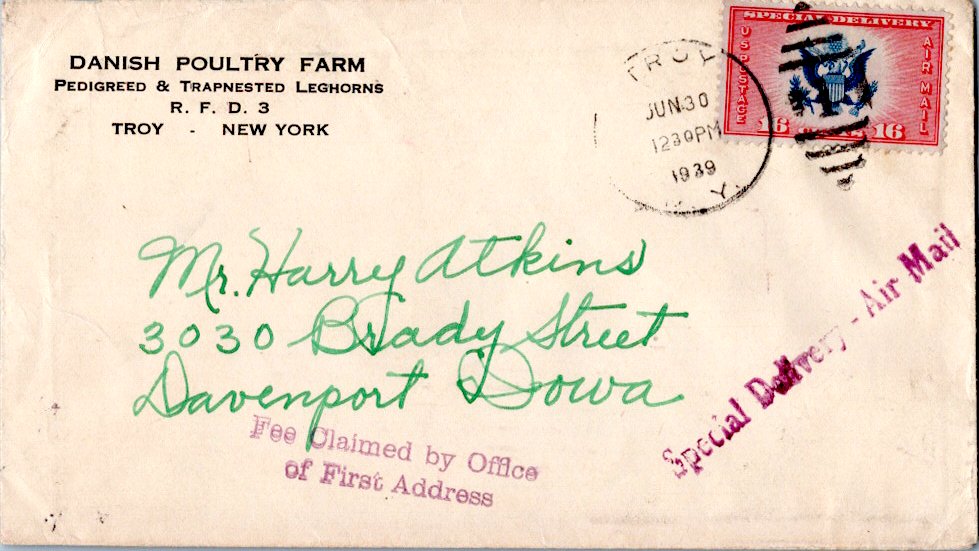 DANISH POULTRY FARM
PEDIGREED & TRAPNESTED LEGHORNS
R. F. D. 3
TROY - NEW YORK
SPECIAL DELIVERY
U S POSTAGE
AIR MAIL
16 16
TROY
JUN 30
1230PM
1939
N. Y.
Mr. Harry Atkins
3030 Brady Street
Davenport Iowa
Special Delivery - Air Mail
Fee Claimed by Office
of First Address